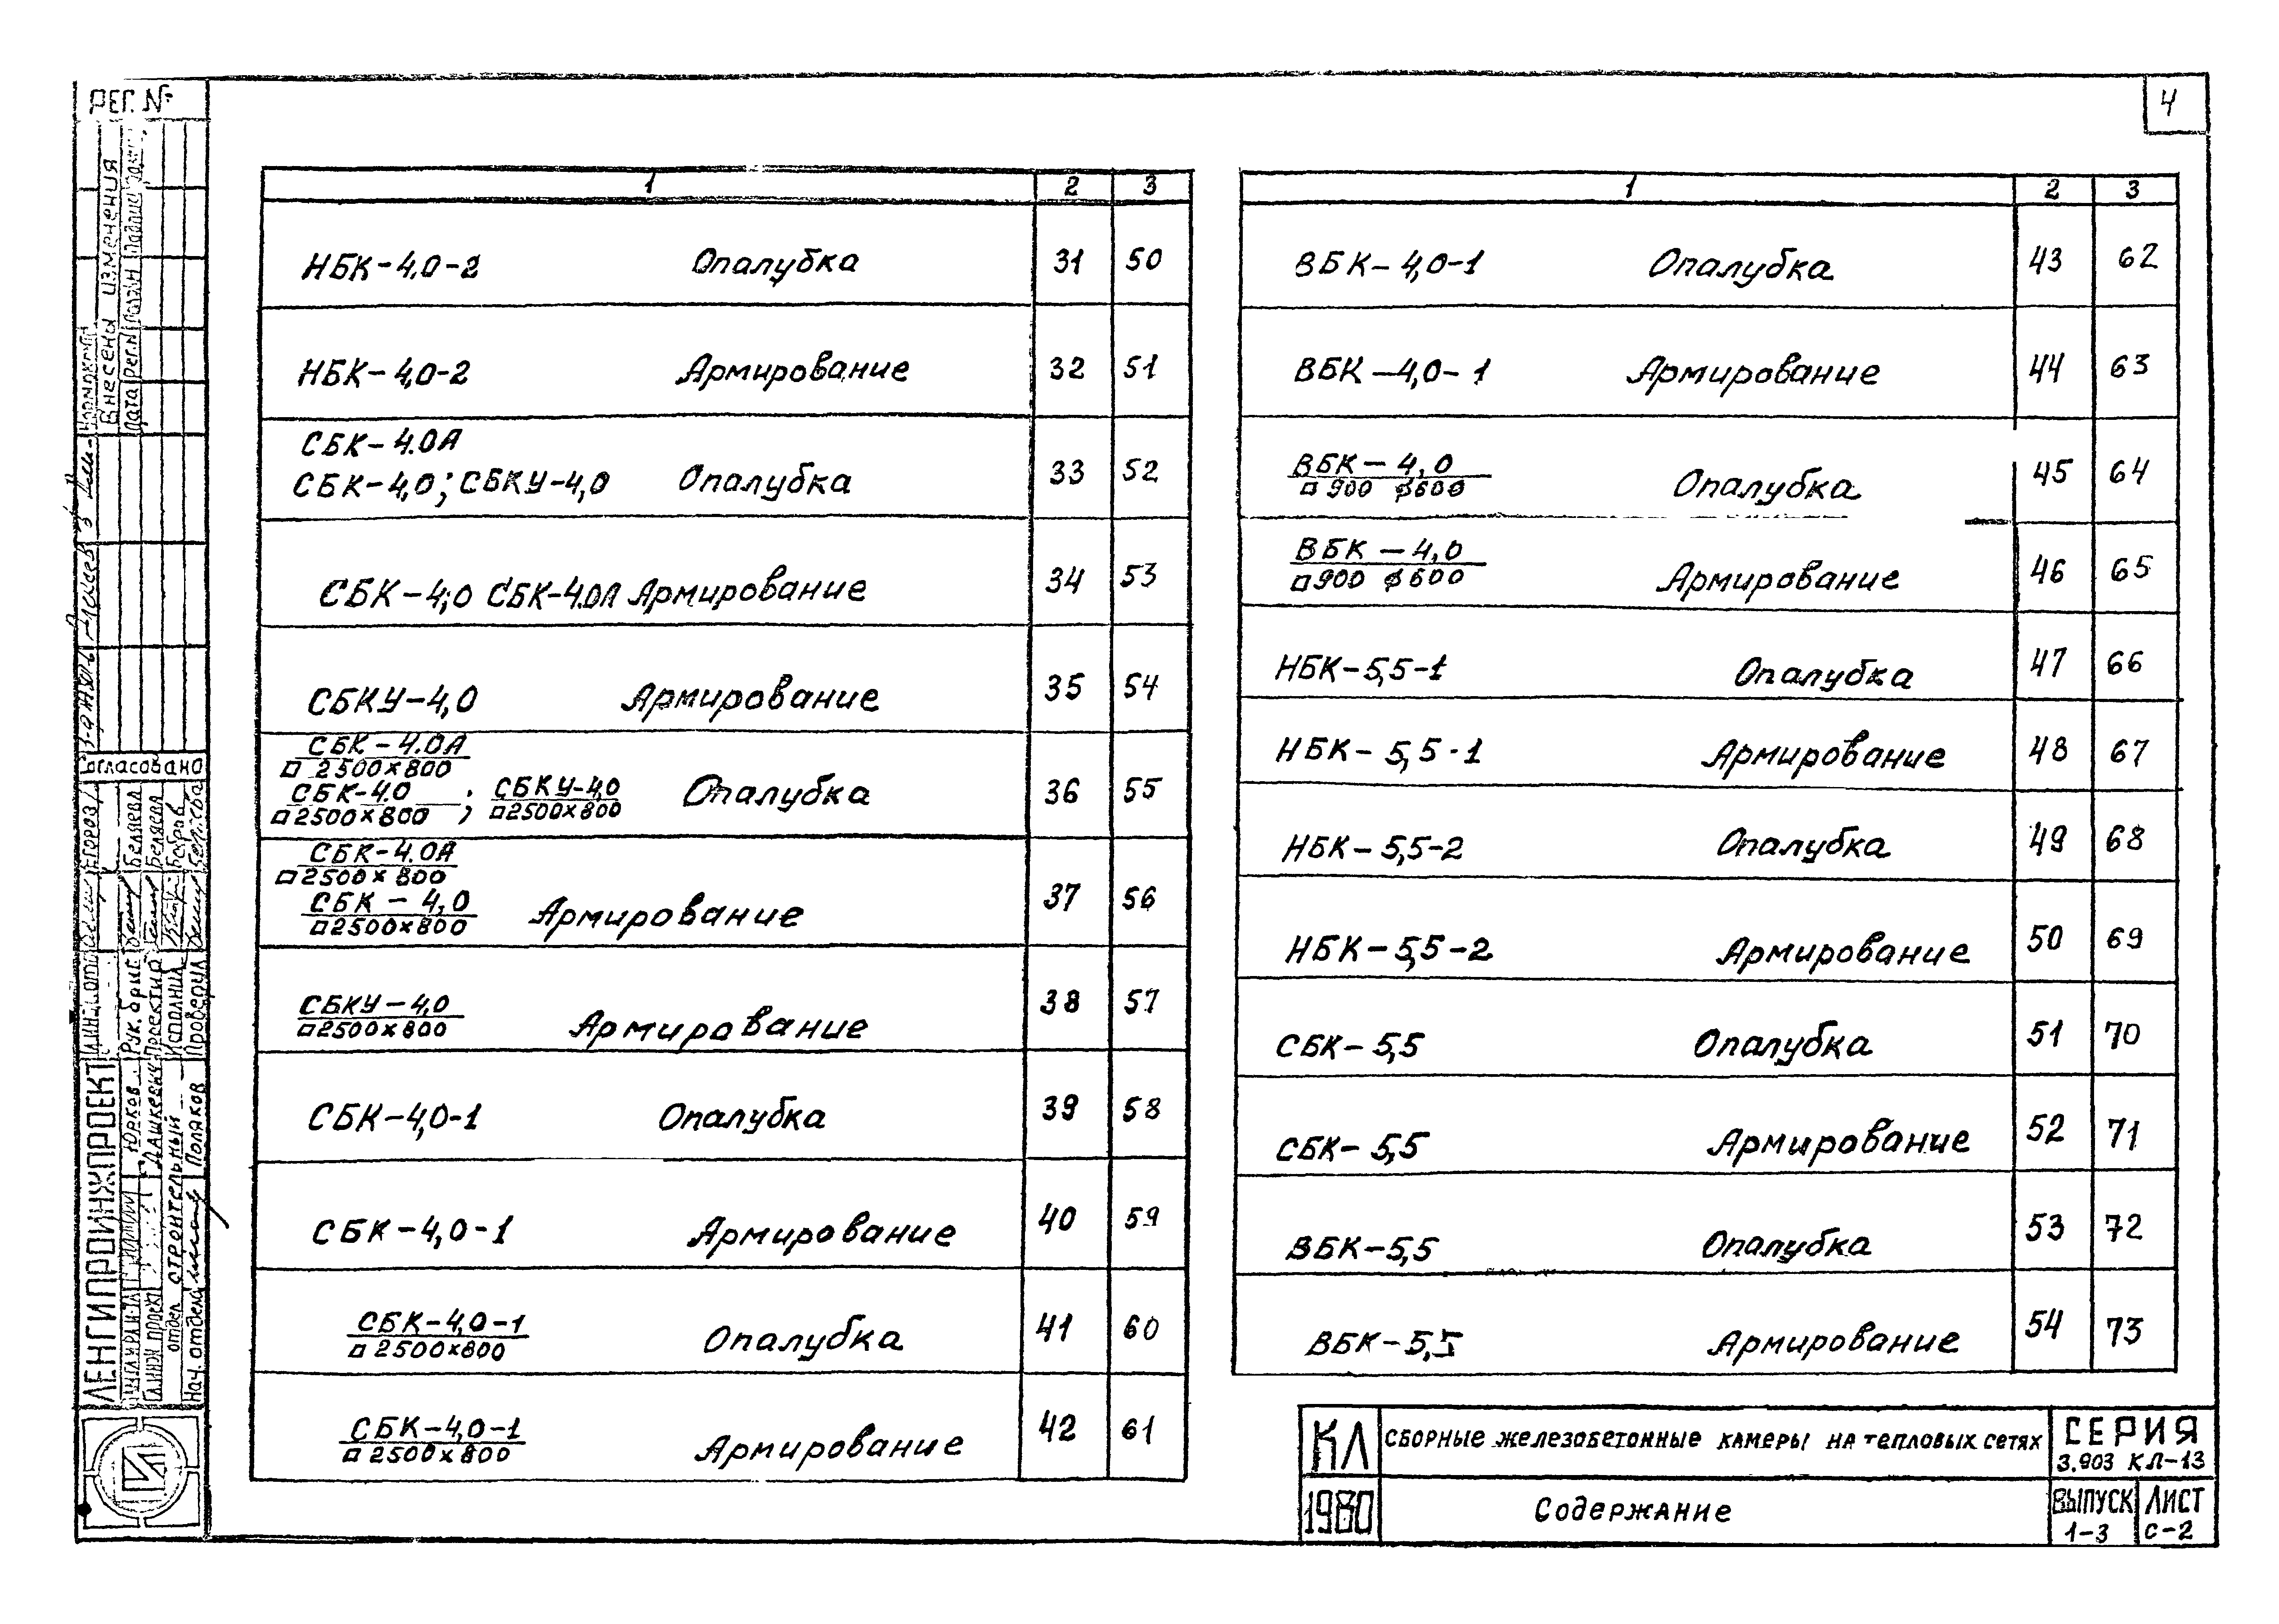 РЕГ. №
4
1 2 3
НБК-4,0-2 Опалубка 31 50
НБК-4,0-2 Армирование 32 51
СБК-4.0А
СБК-4,0; СБКУ-4,0 Опалубка 33 52
СБК-4,0 СБК-4.0А Армирование 34 53
СБКУ-4,0 Армирование 35 54
СБК-4.0А
□ 2500×800
СБК-4.0 ; СБКУ-4,0 Опалубка 36 55
□2500×800 □2500×800
СБК-4.0А
□2500×800
СБК-4,0 Армирование 37 56
□2500×800
СБКУ-4,0 Армирование 38 57
□2500×800
СБК-4,0-1 Опалубка 39 58
СБК-4,0-1 Армирование 40 59
СБК-4,0-1 Опалубка 41 60
□2500×800
СБК-4,0-1 Армирование 42 61
□2500×800
1 2 3
ВБК-4,0-1 Опалубка 43 62
ВБК-4,0-1 Армирование 44 63
ВБК-4,0 Опалубка 45 64
□900 ⌀600
ВБК-4,0 Армирование 46 65
□900 ⌀600
НБК-5,5-1 Опалубка 47 66
НБК-5,5-1 Армирование 48 67
НБК-5,5-2 Опалубка 49 68
НБК-5,5-2 Армирование 50 69
СБК-5,5 Опалубка 51 70
СБК-5,5 Армирование 52 71
ВБК-5,5 Опалубка 53 72
ВБК-5,5 Армирование 54 73
КЛ СБОРНЫЕ ЖЕЛЕЗОБЕТОННЫЕ КАМЕРЫ НА ТЕПЛОВЫХ СЕТЯХ СЕРИЯ
3.903 КЛ-13
1980 Содержание ВЫПУСК ЛИСТ
1-3 С-2
Внесены изменения
Дата Рег.N
Согласовано
ЛЕНГИПРОИНЖПРОЕКТ
Юрков Рук. бриг Беляева
Дашкевич Проектир Беляева
отдел строительный Исполнил Бобров
Нач. отдела Поляков Проверил